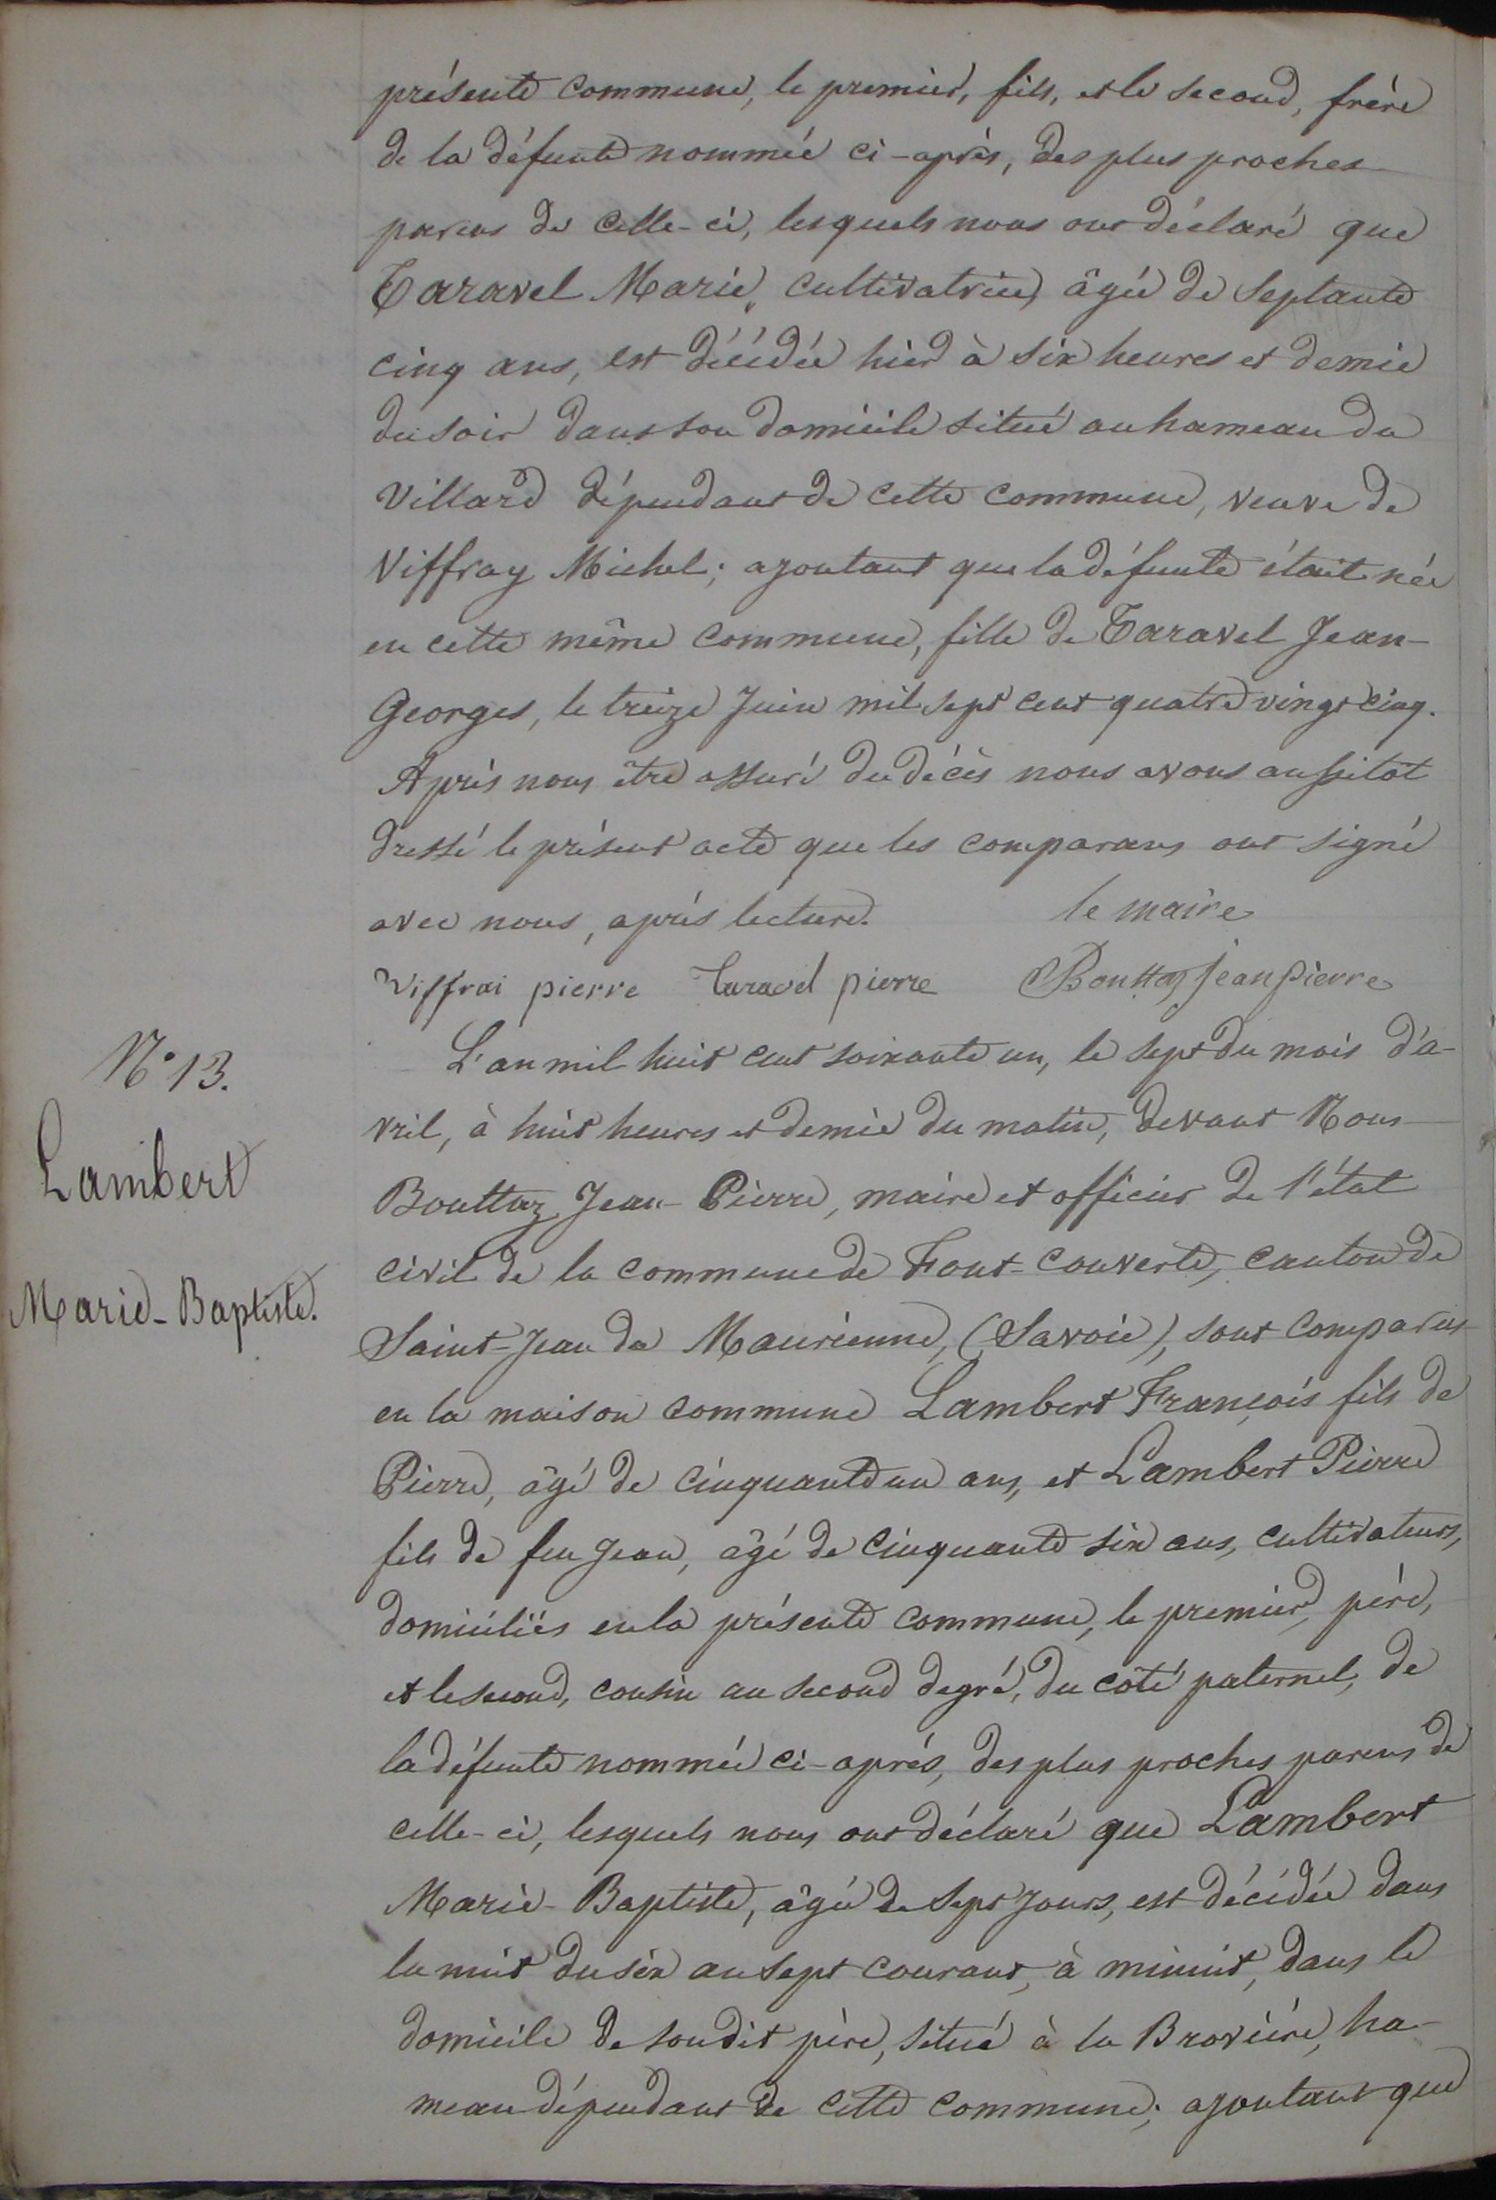 présente commune, le premier, fils, et le second, frère
de la défunte nommée ci-après, des plus proches
parens de celle-ci, lesquels nous ont déclaré que
Taravel Marie, cultivatrice, âgée de septante
cinq ans, est décédée hier à six heures et demie
du soir dans son domicile situé au hameau du
Villard dépendant de cette commune, veuve de
Viffray Michel; ajoutant que la défunte était née
en cette même commune, fille de Taravel Jean-
Georges, le treize Juin mil sept cent quatre vingt cinq.
Après nous être assuré du décès nous avons aussitôt
dressé le présent acte que les comparans ont signé
avec nous, après lecture. le maire
Viffrai pierre Taravel pierre Bouttaz jean pierre
N° 13.
Lambert
Marie-Baptiste.
L'an mil huit cent soixante un, le sept du mois d'a-
vril, à huit heures et demie du matin, devant Nous
Bouttaz Jean-Pierre, maire et officier de l'état
civil de la commune de Font-couverte, canton de
Saint-Jean de Maurienne, (Savoie), sont comparus
en la maison commune Lambert François fils de
Pierre, âgé de cinquante un ans, et Lambert Pierre
fils de feu Jean, âgé de cinquante six ans, cultivateurs,
domiciliés en la présente commune, le premier, père,
et le second, cousin au second degré, du côté paternel, de
la défunte nommée ci-après, des plus proches parens de
celle-ci, lesquels nous ont déclaré que Lambert
Marie-Baptiste, âgée de sept jours, est décédée dans
la nuit du six au sept courant, à minuit, dans le
domicile de son dit père, situé à la Brovière, ha-
meau dépendant de cette commune; ajoutant que